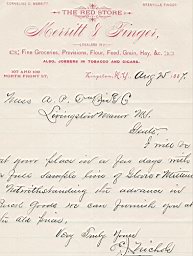 CORNELIUS D. MERRITT.
STEENVILLE FINGER.
THE RED STORE
Merritt & Finger,
DEALERS IN
Fine Groceries, Provisions, Flour, Feed, Grain, Hay, &c.
ALSO, JOBBERS IN TOBACCO AND CIGARS.
107 AND 109
NORTH FRONT ST.
Kingston, N.Y. Aug 25 1887.
Messrs A. P. & Co
Livingston Manor N.Y.
Gents
I will be
at your place in a few days with
a fine sample line of Gloves & Mittens
Notwithstanding the advance in
Goods we can furnish you at
the old price,
Very Truly Yours
E. Nichols